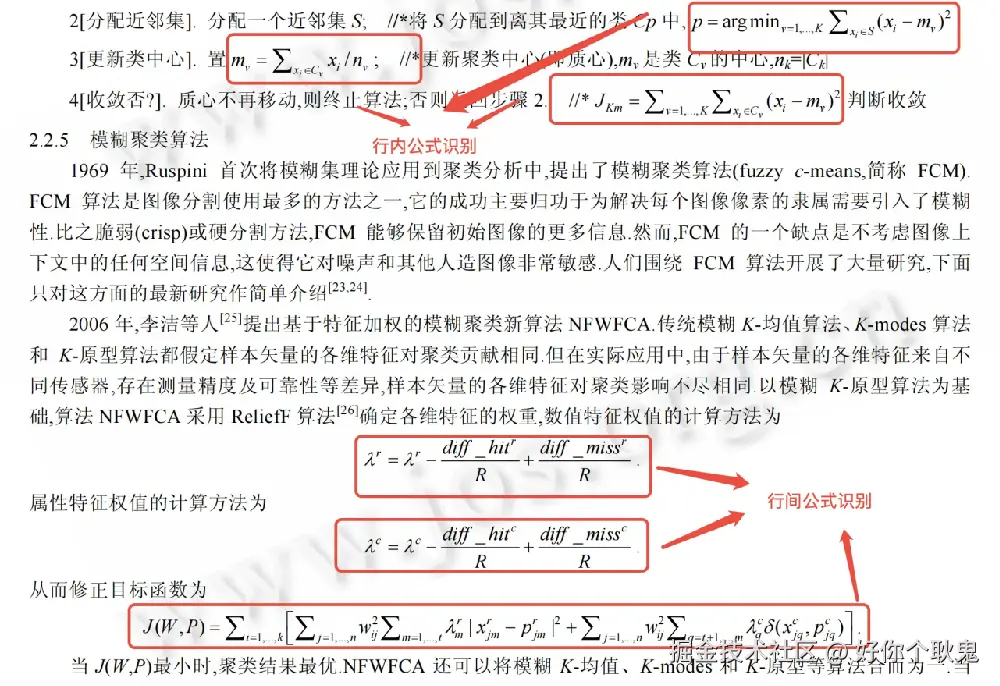 2[分配近邻集]. 分配一个近邻集 S; //*将 S 分配到离其最近的类 Cp 中, p = argmin_{v=1,...,K} ∑_{x_i∈S}(x_i − m_v)^2
3[更新类中心]. 置 m_v = ∑_{x_i∈C_v} x_i / n_v ; //*更新聚类中心(即质心),m_v 是类 C_v 的中心,n_k=|C_k|
4[收敛否?]. 质心不再移动,则终止算法;否则返回步骤 2. //* J_{Km} = ∑_{v=1,...,K} ∑_{x_i∈C_v}(x_i − m_v)^2 判断收敛
行内公式识别
2.2.5 模糊聚类算法
1969 年,Ruspini 首次将模糊集理论应用到聚类分析中,提出了模糊聚类算法(fuzzy c-means,简称 FCM).
FCM 算法是图像分割使用最多的方法之一,它的成功主要归功于为解决每个图像像素的隶属需要引入了模糊
性.比之脆弱(crisp)或硬分割方法,FCM 能够保留初始图像的更多信息.然而,FCM 的一个缺点是不考虑图像上
下文中的任何空间信息,这使得它对噪声和其他人造图像非常敏感.人们围绕 FCM 算法开展了大量研究,下面
只对这方面的最新研究作简单介绍[23,24].
2006 年,李洁等人[25]提出基于特征加权的模糊聚类新算法 NFWFCA.传统模糊 K-均值算法、K-modes 算法
和 K-原型算法都假定样本矢量的各维特征对聚类贡献相同.但在实际应用中,由于样本矢量的各维特征来自不
同传感器,存在测量精度及可靠性等差异,样本矢量的各维特征对聚类影响不尽相同.以模糊 K-原型算法为基
础,算法 NFWFCA 采用 ReliefF 算法[26]确定各维特征的权重,数值特征权值的计算方法为
λ^r = λ^r − diff_hit^r / R + diff_miss^r / R .
属性特征权值的计算方法为
行间公式识别
λ^c = λ^c − diff_hit^c / R + diff_miss^c / R .
从而修正目标函数为
J(W,P) = ∑_{i=1,...,k}[∑_{j=1,...,n} w_{ij}^2 ∑_{m=1,...,t} λ_m^r | x_{jm}^r − p_{jm}^r |^2 + ∑_{j=1,...,n} w_{ij}^2 ∑ λ_q^c δ(x_{jq}^c, p_{jq}^c)]
当 J(W,P)最小时,聚类结果最优.NFWFCA 还可以将模糊 K-均值、K-modes 和 K-原型等算法合而为一.当
掘金技术社区 @ 好你个耿鬼